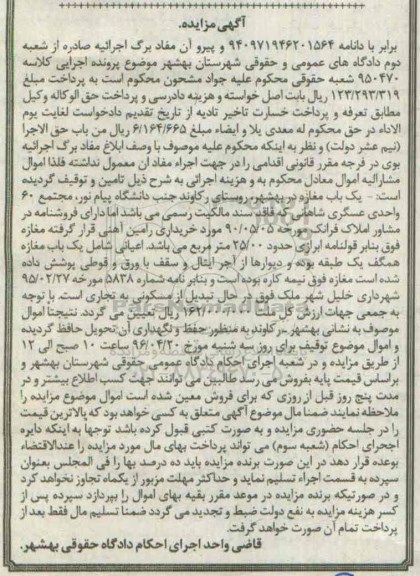 آگهی مزایده.
برابر با دادنامه ۹۴۰۹۷۱۹۴۶۲۰۱۵۶۴ و پیرو آن مفاد برگ اجرائیه صادره از شعبه
دوم دادگاه های عمومی و حقوقی شهرستان بهشهر موضوع پرونده اجرایی کلاسه
۹۵۰۴۷۰ شعبه حقوقی محکوم علیه جواد مشحون محکوم است به پرداخت مبلغ
۱۲۳/۲۹۳/۳۱۹ ریال بابت اصل خواسته و هزینه دادرسی و پرداخت حق الوکاله وکیل
مطابق تعرفه و پرداخت خسارت تاخیر تادیه از تاریخ تقدیم دادخواست لغایت یوم
الاداء در حق محکوم له معدی یلا و ایضاء مبلغ ۶/۱۶۴/۶۶۵ ریال من باب حق الاجرا
(نیم عشر دولت) و نظر به اینکه محکوم علیه موصوف با وصف ابلاغ مفاد برگ اجرائیه
بوی در فرجه مقرر قانونی اقدامی را در جهت اجراء مفاد آن معمول نداشته فلذا اموال
مشارالیه اموال معادل محکوم به و هزینه اجرائی به شرح ذیل تامین و توقیف گردیده
است: - یک باب مغازه در بهشهر، روستای رکاوند جنب دانشگاه پیام نور، مجتمع ۶۰
واحدی عسگری شاهانی که فاقد سند مالکیت رسمی می باشد اما دارای فروشنامه در
مشاور املاک فرانک مورخه ۹۰/۰۵/۰۵ مورد خریداری رامین آهنی قرار گرفته مغازه
فوق بنابر قولنامه ابرازی حدود ۲۵/۰۰ متر مربع می باشد. اعیانی شامل یک باب مغازه
همگف یک طبقه بوده و دیوارها از آجر ایتال و سقف با ورق و قوطی پوشش داده
شده است مغازه فوق نیمه کاره بوده است و بنابر نامه شماره ۵۸۳۸ مورخه ۹۵/۰۲/۲۷
شهرداری خلیل شهر ملک فوق در حال تبدیل از مسکونی به تجاری است. با توجه
به جمعی جهات ارزش کل ملک ۱۶۲/۰۰۰/۰۰۰ ریال تعیین می گردد. نتیجتا اموال
موصوف به نشانی بهشهر ـ رکاوند به منظور حفظ و نگهداری آن تحویل حافظ گردیده
و اموال موضوع توقیف برای روز سه شنبه مورخ ۹۶/۰۴/۲۰ ساعت ۱۰ صبح الی ۱۲
از طریق مزایده و در شعبه اجرای احکام دادگاه عمومی حقوقی شهرستان بهشهر و
براساس قیمت پایه بفروش می رسد طالبین می توانند جهت کسب اطلاع بیشتر و در
مدت پنج روز قبل از روزی که برای فروش معین شده است اموال موضوع مزایده را
ملاحظه نمایند ضمنا مال موضوع آگهی متعلق به کسی خواهد بود که بالاترین قیمت
را در جلسه حضوری مزایده و به صورت کتبی قبول کرده باشد توجها به اینکه دایره
اجحرای احکام (شعبه سوم) می تواند پرداخت بهای مال مورد مزایده را عندالاقتضاء
بوعده قرار دهد در این صورت برنده مزایده باید ده درصد بها را فی المجلس بعنوان
سپرده به قسمت اجراء تسلیم نماید و حداکثر مهلت مزبور از یکماه تجاوز نخواهد کرد
و در صورتیکه برنده مزایده در موعد مقرر بقیه بهای اموال را بپردازد سپرده پس از
کسر هزینه مزایده به نفع دولت ضبط و تجدید می گردد ضمنا تسلیم مال فقط بعد از
پرداخت تمام آن صورت خواهد گرفت.
قاضی واحد اجرای احکام دادگاه حقوقی بهشهر.